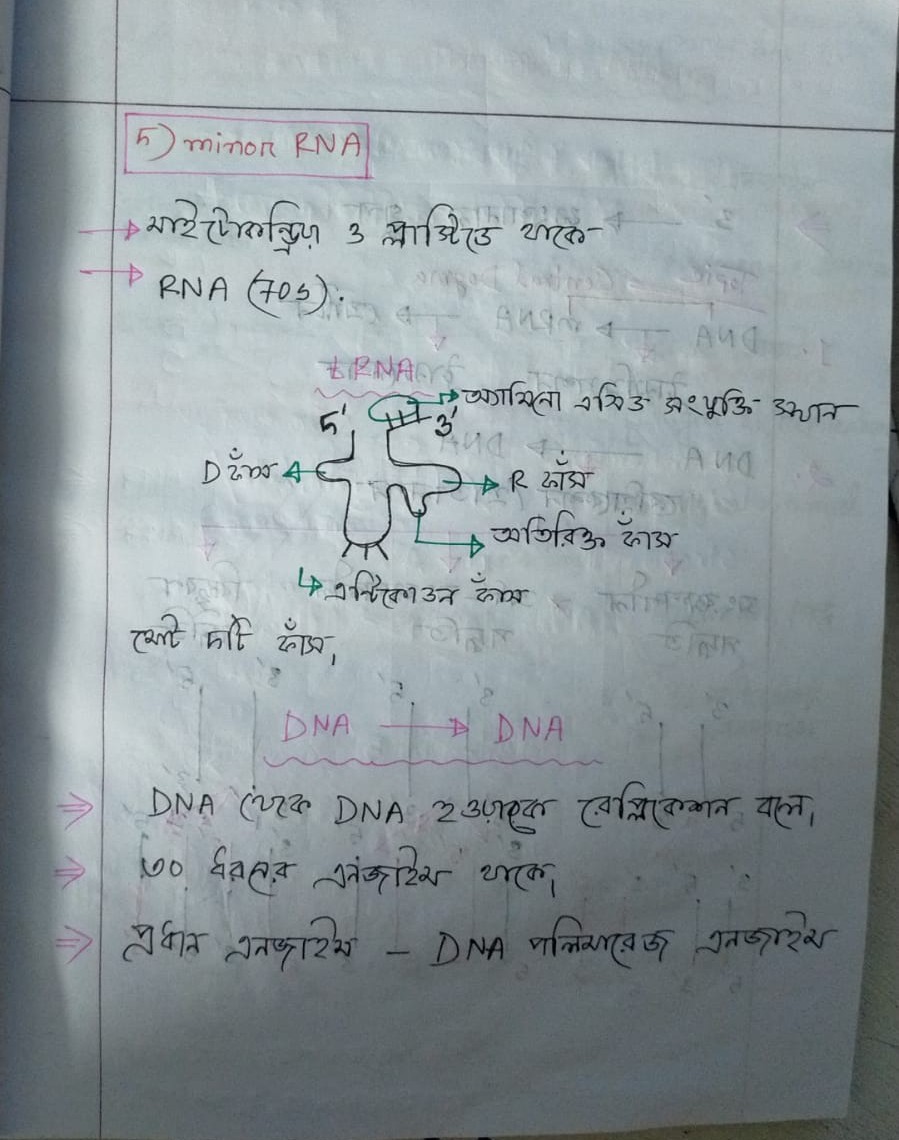 5) minor RNA
→ মাইটোকন্ড্রিয়া ও প্লাস্টিডে থাকে-
→ RNA (70s).
tRNA
5' 3' → অ্যামিনো এসিড সংযুক্তি স্থান
D ফাঁস
R ফাঁস
অতিরিক্ত ফাঁস
↳ এন্টিকোডন ফাঁস
মোট ফাঁস,
DNA → DNA
⇒ DNA থেকে DNA হওয়াকে রেপ্লিকেশন বলে,
⇒ ৩০ ধরনের এনজাইম থাকে,
⇒ প্রধান এনজাইম - DNA পলিমারেজ এনজাইম